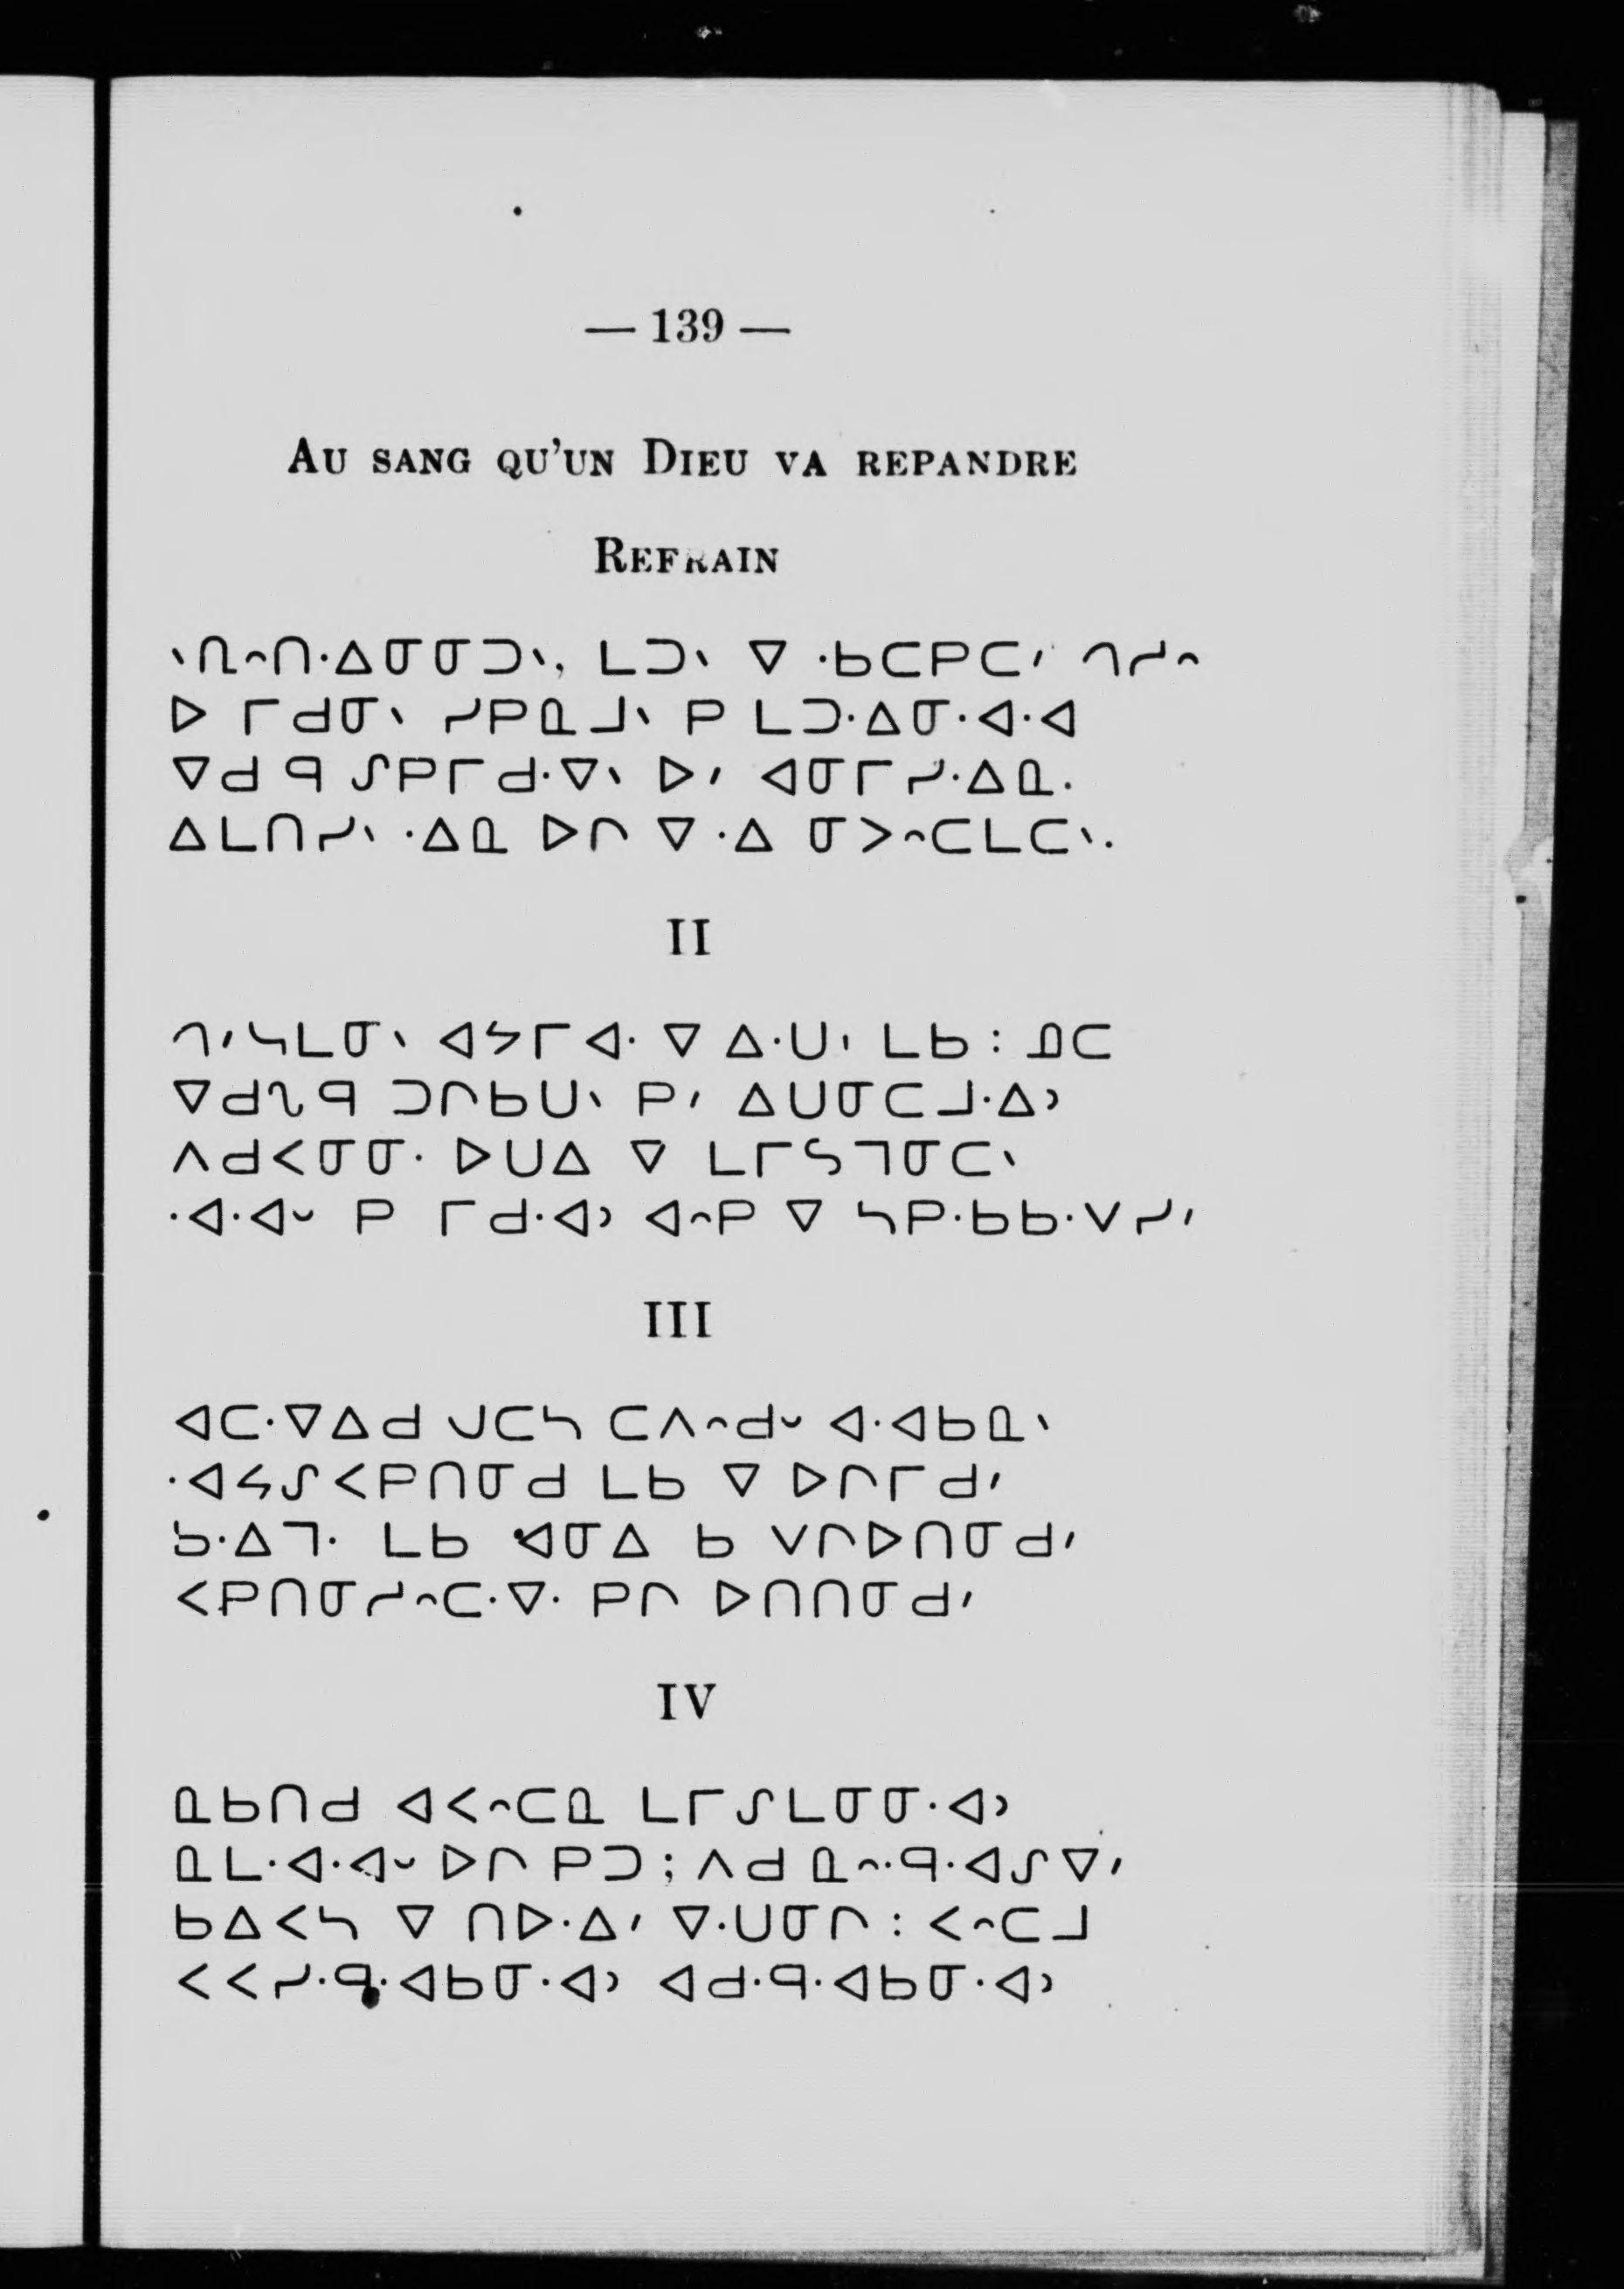 — 139 —
AU SANG QU'UN DIEU VA REPANDRE
REFRAIN
ᐠᘂᐢᑎᐧᐃᓂᓂᑐᐠ, ᒪᑐᐠ ᐁ ᐧᑲᑕᑭᑕᐟ ᒉᓱᐢ
ᐅ ᒥᑯᓂᐠ ᓯᑭᓇᒧᐠ ᑭ ᒪᑐᐧᐃᓂᐧᐊᐧᐊ
ᐁᑯ ᑫ ᔑᑭᒥᑯᐧᐁᐠ ᐅᐟ ᐊᓂᒥᓯᐧᐃᓇ.
ᐃᒪᑎᓯᐠ ᐧᐃᓇ ᐅᒋ ᐁ ᐧᐃ ᓂᐳᐢᑕᒪᑕᐠ.
II
ᒉᐟᓴᒪᓂᐠ ᐊᔭᒥᐊᐧ ᐁ ᐃᐧᑌᑊ ᒪᑲ : ᒁᑕ
ᐁᑯᔐᑫ ᑐᒋᑲᑌᐠ ᑭᐟ ᐃᑌᓂᑕᒧᐧᐃᐣ
ᐱᑯᐸᓂᓂᐧ ᐅᑌᐃ ᐁ ᒪᒥᔕᒣᓂᑕᐠ
ᐧᐊᐧᐊᐨ ᑭ ᒥᑯᐧᐊᐣ ᐊᐢᑭ ᐁ ᓴᑭᐧᑲᑲᐧᐯᓯᐟ
III
ᐊᑕᐧᐁᐃᑯ ᒍᑕᓴ ᑕᐱᐢᑯᐨ ᐊᐧᐊᑲᓇᐠ
ᐧᐊᔭᔑᐸᑭᑎᓂᑯ ᒪᑲ ᐁ ᐅᒋᒥᑯᐟ
ᑲᐧᐃᒣᐧ ᒪᑲ ᐊᓂᐃ ᑲ ᐯᒋᐅᑎᓂᑯᐟ
ᐸᑭᑎᓂᓱᐢᑕᐧᐁᐧ ᑭᒋ ᐅᑎᑎᓂᑯᐟ
IV
ᓇᑲᑎᑯ ᐊᐸᐢᑕᓇ ᒪᒥᔑᒪᓂᓂᐧᐊᐣ
ᓇᒪᐧᐊᐧᐊᐨ ᐅᒋ ᑭᑐ ; ᐱᑯ ᓇᐢᐧᑫᐧᐊᔑᐁᐟ
ᑲᐃᐸᓴ ᐁ ᑎᐅᐧᐃᐟ ᐁᐧᑌᓂᒋ : ᐸᐢᑕᒧ
ᐸᐸᓯᐧᑫᐧᐊᑲᓂᐧᐊᐣ ᐊᑯᐧᑫᐧᐊᑲᓂᐧᐊᐣ